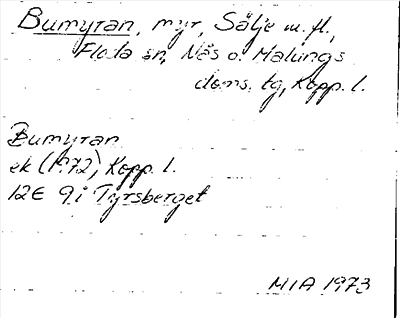 Bumyran, myr, Sälje m. fl.,
Floda sn, Näs o. Malungs
doms. tg, Kopp. l.
Bumyran
ek (1972), Kopp. l.
12E 9i Tyrsberget
MIA 1973